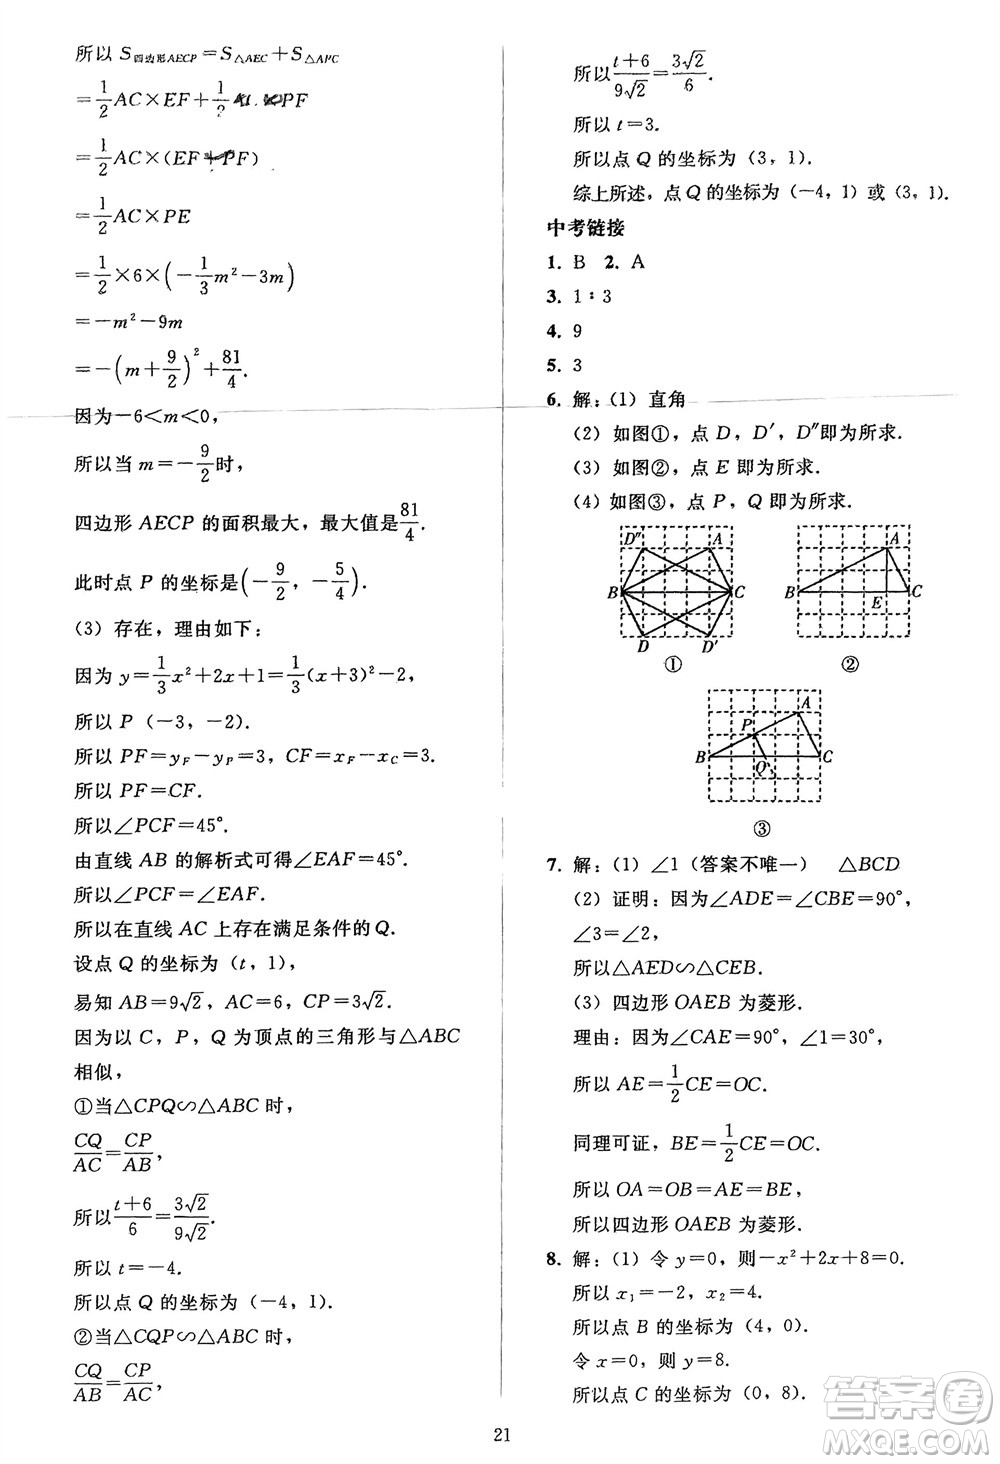 所以 S四边形AECP＝S△AEC＋S△APC
＝1/2 AC×EF＋1/2 AC×PF
＝1/2 AC×(EF＋PF)
＝1/2 AC×PE
＝1/2×6×(－1/3 m²－3m)
＝－m²－9m
＝－(m＋9/2)²＋81/4.
因为－6＜m＜0，
所以当 m＝－9/2时，
四边形 AECP 的面积最大，最大值是81/4.
此时点 P 的坐标是(－9/2，－5/4).
（3）存在，理由如下：
因为 y＝1/3 x²＋2x＋1＝1/3(x＋3)²－2，
所以 P（－3，－2）.
所以 PF＝yF－yP＝3，CF＝xF－xC＝3.
所以 PF＝CF.
所以∠PCF＝45°.
由直线 AB 的解析式可得∠EAF＝45°.
所以∠PCF＝∠EAF.
所以在直线 AC 上存在满足条件的 Q.
设点 Q 的坐标为（t，1），
易知 AB＝9√2，AC＝6，CP＝3√2.
因为以 C，P，Q 为顶点的三角形与△ABC
相似，
①当△CPQ∽△ABC 时，
CQ/AC＝CP/AB，
所以(t＋6)/6＝3√2/9√2.
所以 t＝－4.
所以点 Q 的坐标为（－4，1）.
②当△CQP∽△ABC 时，
CQ/AB＝CP/AC，
所以(t＋6)/9√2＝3√2/6.
所以 t＝3.
所以点 Q 的坐标为（3，1）.
综上所述，点 Q 的坐标为（－4，1）或（3，1）.
中考链接
1. B 2. A
3. 1∶3
4. 9
5. 3
6. 解：（1）直角
（2）如图①，点 D，D′，D″即为所求.
（3）如图②，点 E 即为所求.
（4）如图③，点 P，Q 即为所求.
D″ A B C D D′
①
A B E C
②
A P B Q C
③
7. 解：（1）∠1（答案不唯一） △BCD
（2）证明：因为∠ADE＝∠CBE＝90°，
∠3＝∠2，
所以△AED∽△CEB.
（3）四边形 OAEB 为菱形.
理由：因为∠CAE＝90°，∠1＝30°，
所以 AE＝1/2 CE＝OC.
同理可证，BE＝1/2 CE＝OC.
所以 OA＝OB＝AE＝BE，
所以四边形 OAEB 为菱形.
8. 解：（1）令 y＝0，则－x²＋2x＋8＝0.
所以 x₁＝－2，x₂＝4.
所以点 B 的坐标为（4，0）.
令 x＝0，则 y＝8.
所以点 C 的坐标为（0，8）.
21
答案圈
MXQE.COM